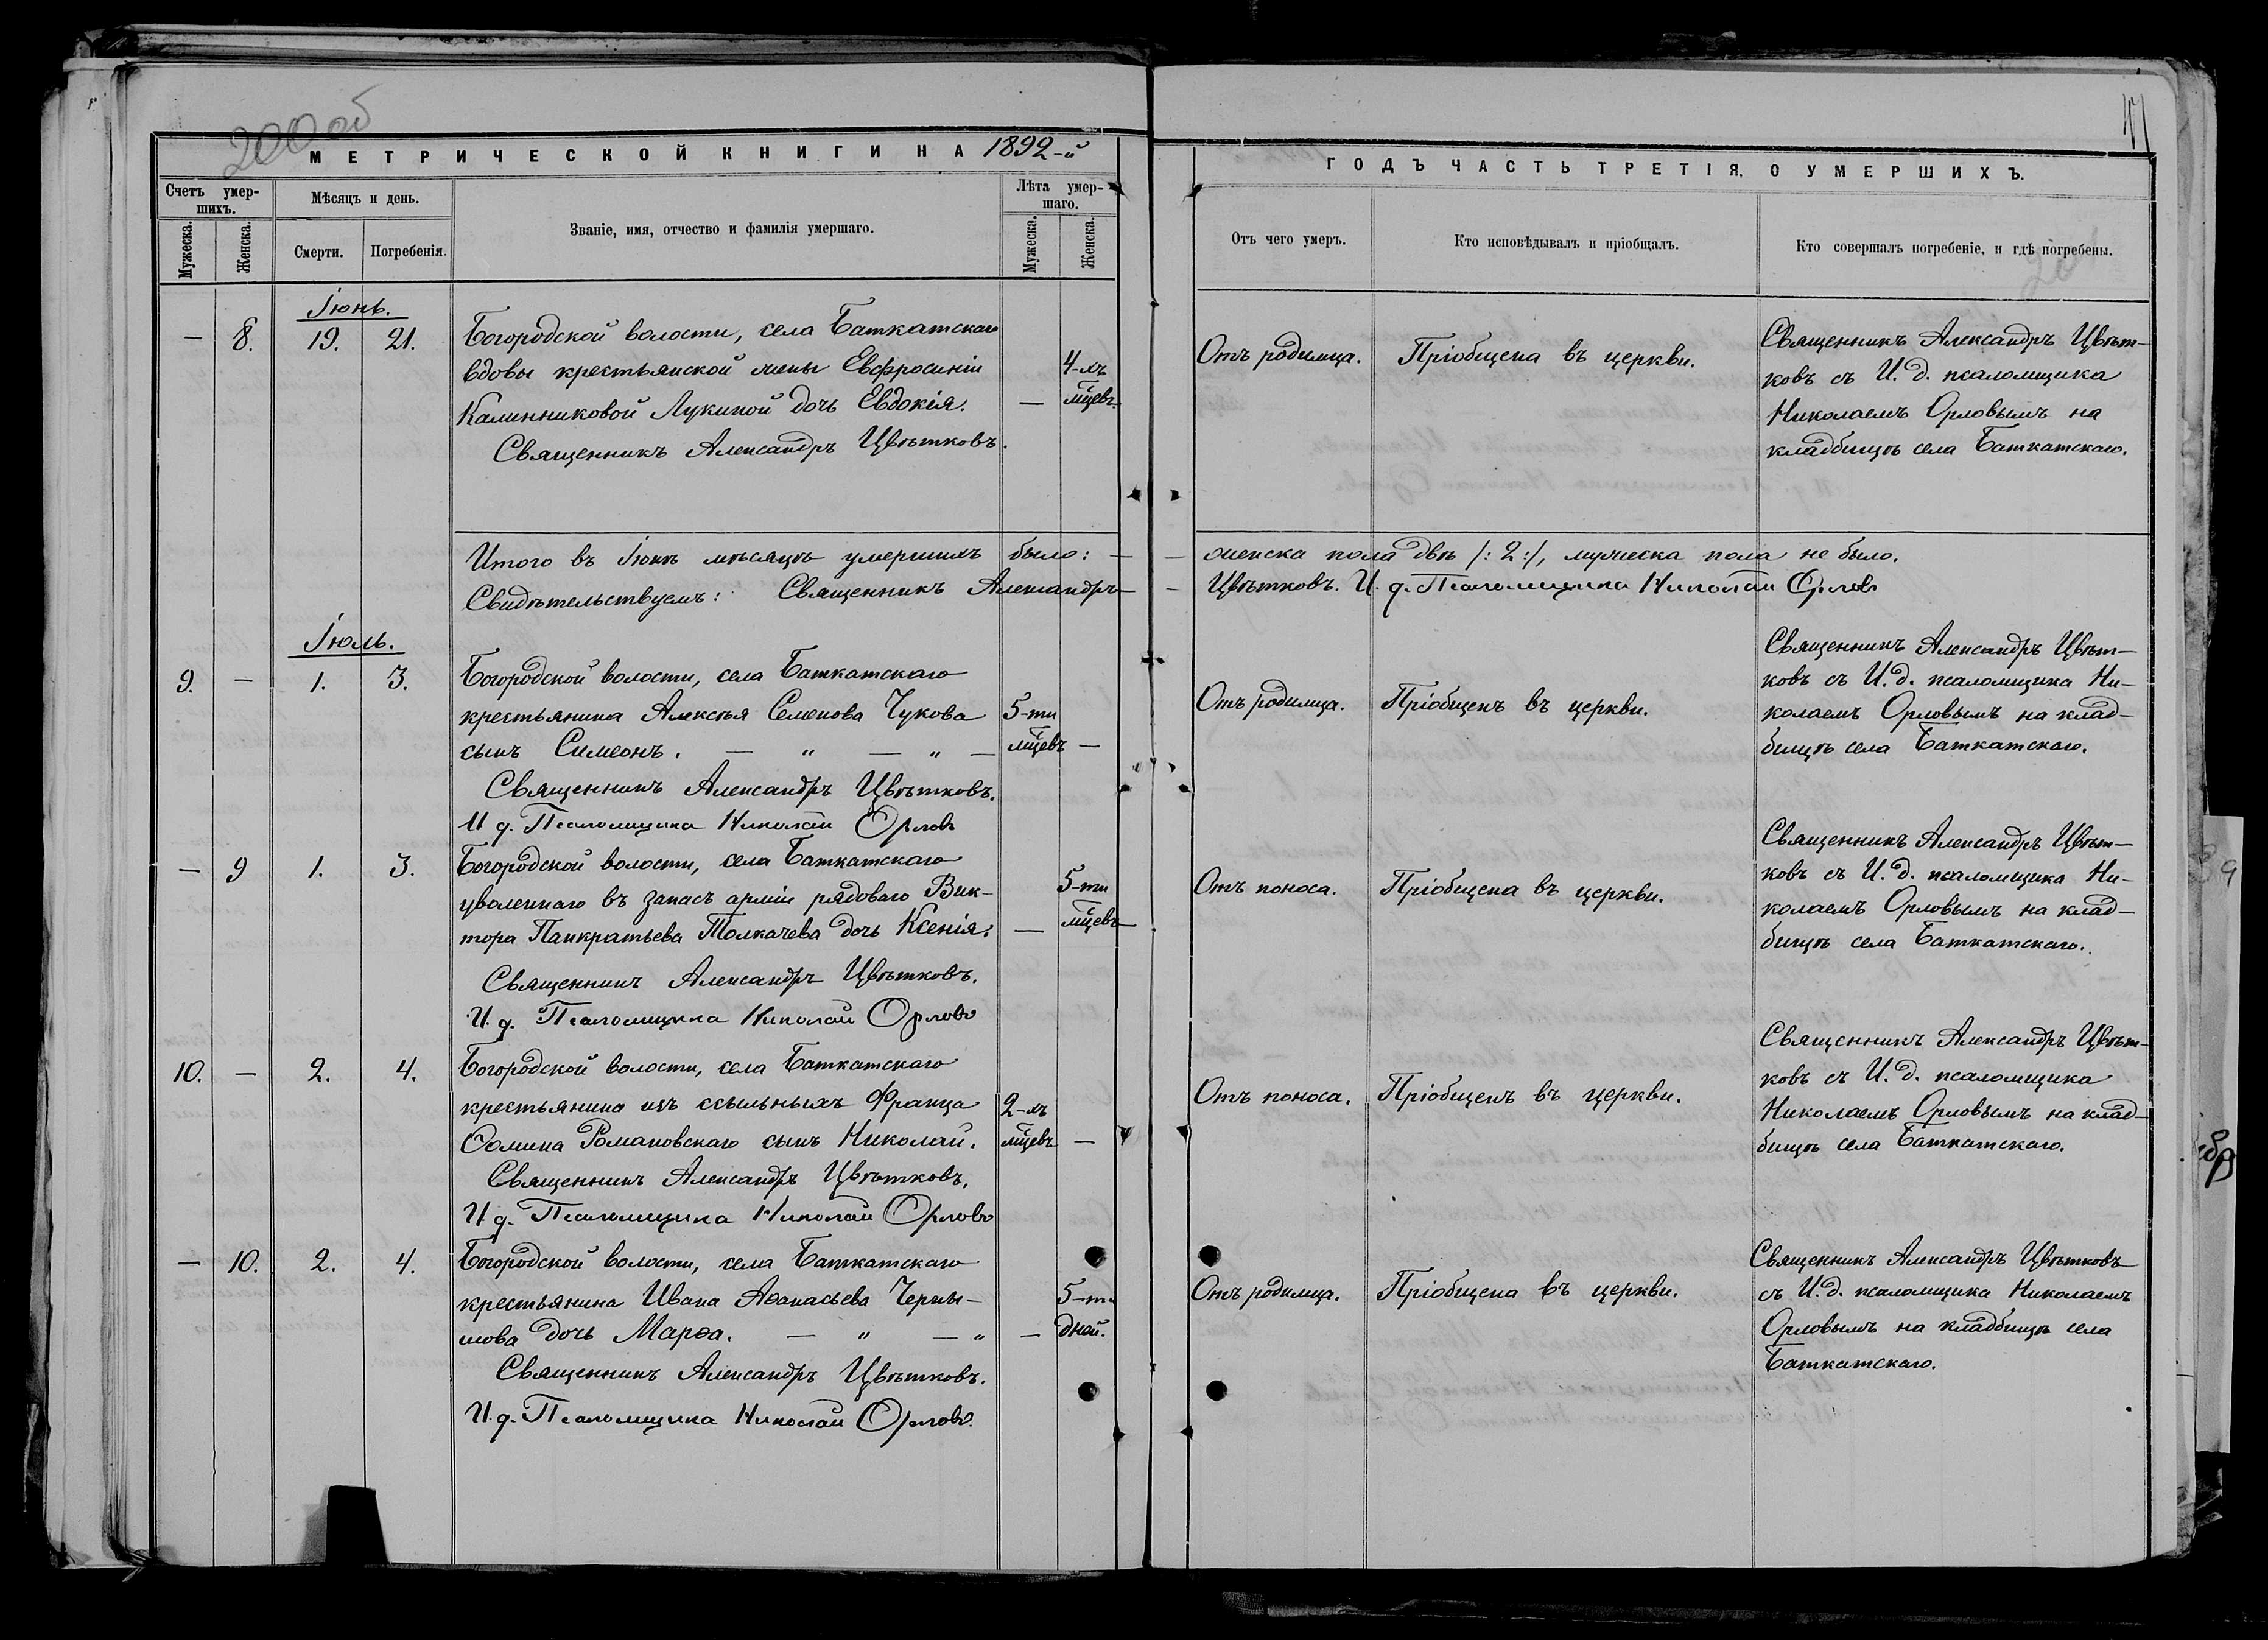 200 об
МЕТРИЧЕСКОЙ КНИГИ НА 1892-й
Счетъ умер-
шихъ.
Мужеска.
Женска.
Мѣсяцъ и день.
Смерти.
Погребенія.
Званіе, имя, отчество и фамилія умершаго.
Лѣта умер-
шаго.
Мужеска.
Женска.
ГОДЪ ЧАСТЬ ТРЕТІЯ, О УМЕРШИХЪ.
Отъ чего умеръ.
Кто исповѣдывалъ и пріобщалъ.
Кто совершалъ погребеніе, и гдѣ погребены.
Іюнь.
— 8. 19. 21.
Богородской волости, села Баткатскаго
вдовы крестьянской жены Евфросиніи
Калинниковой Лукиной дочь Евдокія.
Священникъ Александръ Цвѣтковъ.
— 4-хъ
мцевъ.
Отъ родимца.
Пріобщена въ церкви.
Священникъ Александръ Цвѣт-
ковъ съ И. д. псаломщика
Николаемъ Орловымъ на
кладбищѣ села Баткатскаго.
Итого въ Іюнѣ мѣсяцѣ умершихъ было: — — женска пола двѣ /: 2 :/, мужеска пола не было.
Свидѣтельствуемъ: Священникъ Александръ — — Цвѣтковъ. И. д. Псаломщика Николай Орловъ
Іюль.
9. — 1. 3.
Богородской волости, села Баткатскаго
крестьянина Алексѣя Семенова Чукова
сынъ Симеонъ. — " — " —
Священникъ Александръ Цвѣтковъ.
И д. Псаломщика Николай Орловъ
5-ти
мцевъ —
Отъ родимца.
Пріобщенъ въ церкви.
Священникъ Александръ Цвѣт-
ковъ съ И. д. псаломщика Ни-
колаемъ Орловымъ на клад-
бищѣ села Баткатскаго.
— 9 1. 3.
Богородской волости, села Баткатскаго
уволеннаго въ запасъ арміи рядоваго Вик-
тора Панкратьева Толкачева дочь Ксенія.
Священникъ Александръ Цвѣтковъ.
И. д. Псаломщика Николай Орловъ
— 5-ти
мцевъ
Отъ поноса.
Пріобщена въ церкви.
Священникъ Александръ Цвѣт-
ковъ съ И. д. псаломщика Ни-
колаемъ Орловымъ на клад-
бищѣ села Баткатскаго.
10. — 2. 4.
Богородской волости, села Баткатскаго
крестьянина изъ ссыльныхъ Франца
Осмина Романовскаго сынъ Николай.
Священникъ Александръ Цвѣтковъ.
И д. Псаломщика Николай Орловъ
2-хъ
мцевъ —
Отъ поноса.
Пріобщенъ въ церкви.
Священникъ Александръ Цвѣт-
ковъ съ И. д. псаломщика
Николаемъ Орловымъ на клад-
бищѣ села Баткатскаго.
— 10. 2. 4.
Богородской волости, села Баткатскаго
крестьянина Ивана Аѳанасьева Черны-
шова дочь Марѳа. — " — "
Священникъ Александръ Цвѣтковъ.
И. д. Псаломщика Николай Орловъ.
— 5-ти
дней.
Отъ родимца.
Пріобщена въ церкви.
Священникъ Александръ Цвѣтковъ
съ И. д. псаломщика Николаемъ
Орловымъ на кладбищѣ села
Баткатскаго.